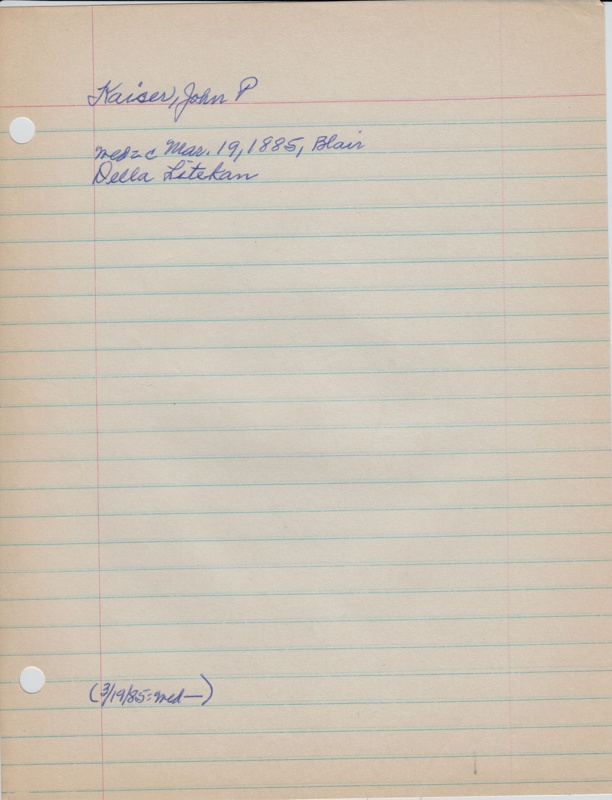 Kaiser, John P
med = c Mar. 19, 1885, Blair
Della Litekan
(3/19/85 = med —)